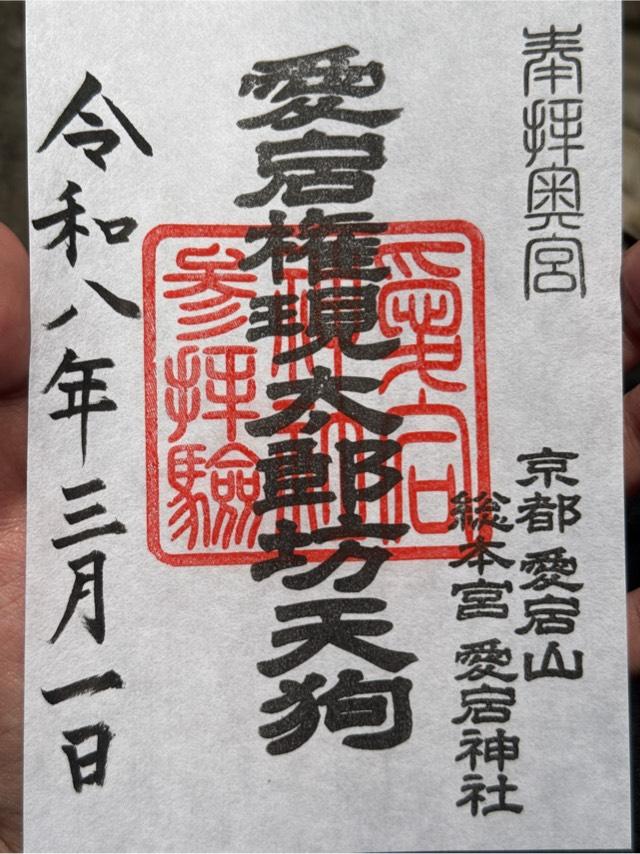 奉拝奥宮
京都 愛宕山
総本宮 愛宕神社
愛宕権現太郎坊天狗
愛宕
神社
参拝驗
令和八年三月一日